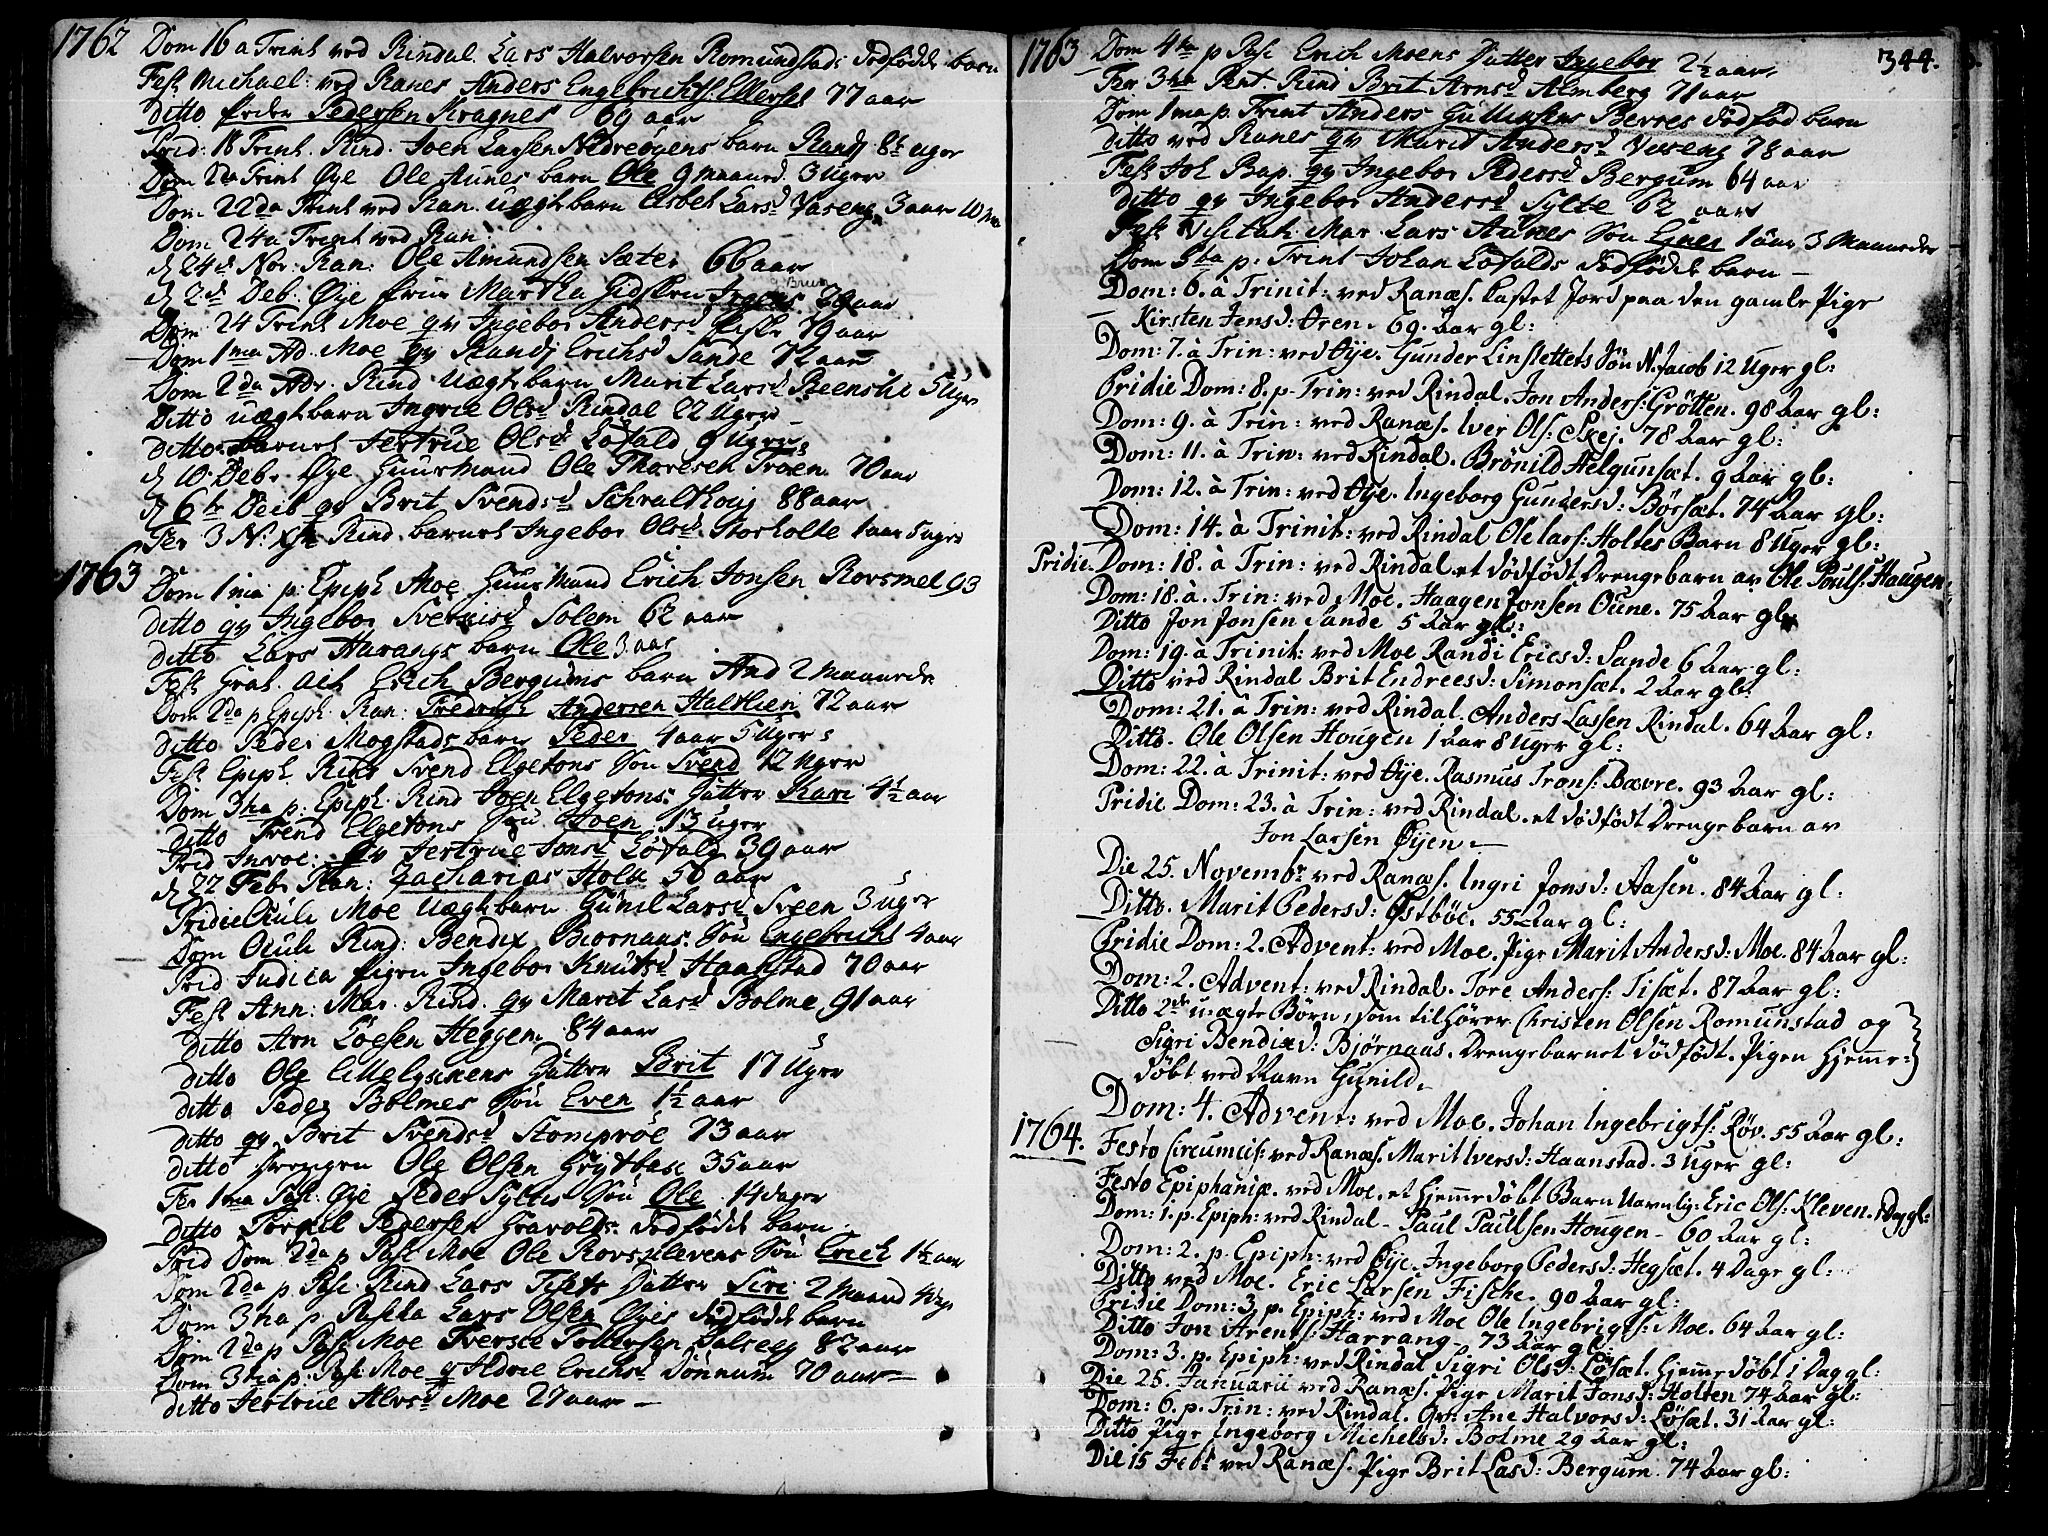 1762 Dom 16 a Trinit ved Rindal Lars Halvorsen Romundstads dødfødde barn
Fest Michael: ved Ranes Anders Engebrichts: Ellerset 77 aar
ditto Peder Pedersen Kragnes 69 aar
Prid: 18 Trinit. Rind. Joen Larsen Nedreøyens barn Randj 8½ uger
Dom Trinit Øye Ole Aunes barn Ole 9 maaned. 3 uger
Dom 22da Trinit ved Ran. uægte barn Lisbet Larsd Vaseng 3 aar 10
Dom 24a Trinit ved Ran.
d 24d Nov: Ran: Ole Amundsen Sæter 66 aar
d 2d Deb. Øye Martha 39 aar
Dom 24 Trinit Moe qv Ingebor Andersd Fiske 79 aar
Dom 1ma Ad. Moe qv Randj Erichsd Sande 72 aar
Dom 2da Adv. Rind Uægte barn Marit Larsd 5 Uger
Ditto uægte barn Ingrie Olsd Rindal 22 Uger
ditto barnet Jertrue Olsd Løfald 9 uger
d 10 Deb. Øye Huusmand Ole Tharesen Troen 70 aar
d 6te Deb qv Brit Svendsd Schralthoug 88 aar
Fer 3 N: Rind. barnet Ingebor Olsd. Storholte 1 aar 5 uger
1763 Dom 1ma p: Epiph Moe Huus Mand Erich Jonsen Rovsmel 93
ditto qv Ingebor Sverkisd Solem 62 aar
ditto Lars Harangs barn Ole 3 aar
Fest Grat. act Erich Bergums barn And 2 maaneder
Dom 2da p Epiph. Ran: Fredrich Andersen Halthien 72 aar
ditto Peder Mogstads barn Peder 4 aar 5 Uger
Fest Epiph. Rind Svend Elgetons Søn Svend 12 Uger
Dom 3tia p. Epiph. Rind Joen Elgetons Datter Kari 4½ aar
ditto Svend Elgetons Søn Joen 13 uger
Prid Invoc: qv Jertrue Jonsd Løfald 39 aar
d 22 Febr Ran: Zacharias Holte 50 aar
Pridie Oculi Moe Uægte barn Gunil Larsd Sveen 3 uger
Dom Oculi Rind: Bendix Biornaas. Søn Engebricht 4 aar
Prid Judica Pigen Ingebor Knutsd Haanstad 70 aar
Fest Ann: Mar. Rind. qv Marit Larsd Bolme 91 aar
ditto Arn Løgsen Heggem 84 aar
ditto Ole Datter Brit 17 Uger
ditto Peder Bolmes Søn Even 1½ aar
ditto qv Brit Svendsd Stomprøe 73 aar
ditto Ole Olsen Grytbak 35 aar
Fer 1ma Pasc: Øye Peder Syltes Søn Ole 14 dager
ditto Torkil Pedersen dødfødde barn
Prid Dom 2da p Pasc Moe Ole Rovsklevens Søn Erich 1½ aar
Dom 2da p. Pasc. Rind Lars Datter Siri 2 Maaned 4
Dom 3tia p. Pascha Lars Olsen Øyes dødfødde barn
Dom 2da p Pasc Moe Sverke Pedersen Dalsegg 82 aar
Dom 3tia p. Pasc Moe q Eldrie Erichsd Dønnum 70 aar
ditto Jertrue Alvsd Moe 27 aar
1763 Dom 4ta p Pasc Erich Moens Datter Ingebor 2½ aar 344.
Fer 3tia Pent. Rind Brit Arnsd Almberg 71 aar
Dom 1ma p. Trinit Anders Gullensens Berres dødfød barn
ditto ved Ranes qv Marit Andersd Vaseng 78 aar
Fest Joh Bap. qv Ingebor Pedersd Bergum 64 aar
ditto qv Ingebor Andersd Sylte 62 aar
Fest Visitat. Mar. Lars Aunes Søn Einer 1 aar 3 Maaneder
Dom 5ta p: Trinit Johan Løfalds dødfødde barn
Dom: 6. à Trinit: ved Ranæs. kastet Jord paa den gamle Pige
Kirsten Jensd: Øren. 69. Aar gl:
Dom: 7. à Trin: ved Øye. Gunder Linslettets Søn N. Jacob 12 Uger gl:
Pridie Dom: 8. p. Trin: ved Rindal. Jon Anders: Grötten. 98 Aar gl:
Dom: 9. à Trin: ved Ranæs. Iver Ols: Skej. 78 Aar gl:
Dom: 11. à Trin: ved Rindal. Brönild Helgunsæt. 9 Aar gl:
Dom: 12. à Trin: ved Øye. Ingeborg Gundersd: Börsæt. 74 Aar gl:
Dom: 14. à Trinit: ved Rindal Ole Lars: Holtes Barn 8 Uger gl:
Pridie Dom: 18. à Trin: ved Rindal et dödfödt Drengebarn av Ole Pouls: Haugen
Dom: 18. à. Trin: ved Moe. Haagen Jonsen Oune. 75 Aar gl:
Ditto Jon Jonsen Sande 5 Aar gl:
Dom: 19. à Trinit: ved Moe Randi Ericsd: Sande 6 Aar gl:
Ditto ved Rindal Brit Endreesd: Simonsæt. 2 Aar gl:
Dom: 21. à Trin: ved Rindal. Anders Lassen Rindal. 64 Aar gl:
Ditto. Ole Olsen Hougen 1 Aar 8 Uger gl:
Dom: 22. à Trinit: ved Øye. Rasmus Trons: Bævre. 93 Aar gl:
Pridie Dom: 23. à Trin: ved Rindal. et dödfödt Drengebarn av
Jon Larsen Öyen.
Die 25. Novembr ved Ranæs. Ingri Jonsd: Aasen. 84 Aar gl:
Ditto. Marit Pedersd: Östböe. 55 Aar gl:
Pridie Dom: 2. Advent: ved Moe. Pige Marit Andersd: Moe. 84 Aar gl:
Dom: 2. Advent: ved Rindal. Tore Anders: Tisæt. 87 Aar gl:
Ditto 2de uægte Börn, som tilhörer Christen Olsen Romunstad og
Sigri Bendixd: Björnaas. Drengebarnet dödfödt. Pigen hjemme-
döbt ved Navn Gunild.
Dom: 4. Advent: ved Moe. Johan Ingebrigts: Röv. 55 Aar gl:
1764. Festo Circumcis: ved Ranæs. Marit Iversd: Haanstad. 3 Uger gl:
Festo Epiphaniæ. ved Moe. et hjemmedöbt Barn navnlig: Eric Ols: Kleven. 1 Dag gl:
Dom: 1. p. Epiph: ved Rindal - Paul Paulsen Hougen - 60 Aar gl:
Dom: 2. p. Epiph: ved Öye. Ingeborg Pedersd: Hegsæt. 4 Dage gl:
Ditto ved Moe. Eric Larsen Fiske. 90 Aar gl:
Pridie Dom: 3. p. Epiph: ved Moe Ole Ingebrigts: Moe. 64 Aar gl:
Ditto Jon Arents: Harrang - 73 Aar gl:
Dom: 3. p. Epiph: ved Rindal Sigri Olsd: Lösæt. hjemmedöbt 1 Dag gl:
Die 25. Januarii ved Ranæs. Pige Marit Jonsd: Holten 74 Aar gl:
Dom: 6. p. Trin: ved Rindal. Qv: Ane Halvorsd: Lösæt. 31 Aar gl:
Ditto Pige Ingeborg Michelsd: Bolme 29 Aar gl:
Die 15 Febr ved Ranæs. Pige Brit Lasd: Bergum. 74 Aar gl: